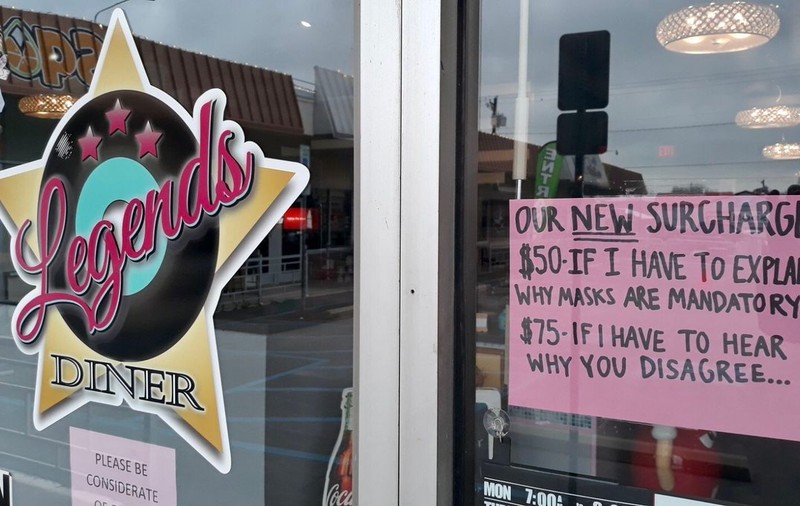 Legends
DINER
PLEASE BE
CONSIDERATE
OUR NEW SURCHARGE
$50-IF I HAVE TO EXPLA
WHY MASKS ARE MANDATORY
$75-IF I HAVE TO HEAR
WHY YOU DISAGREE...
MON 7:00
ENTR
Coca